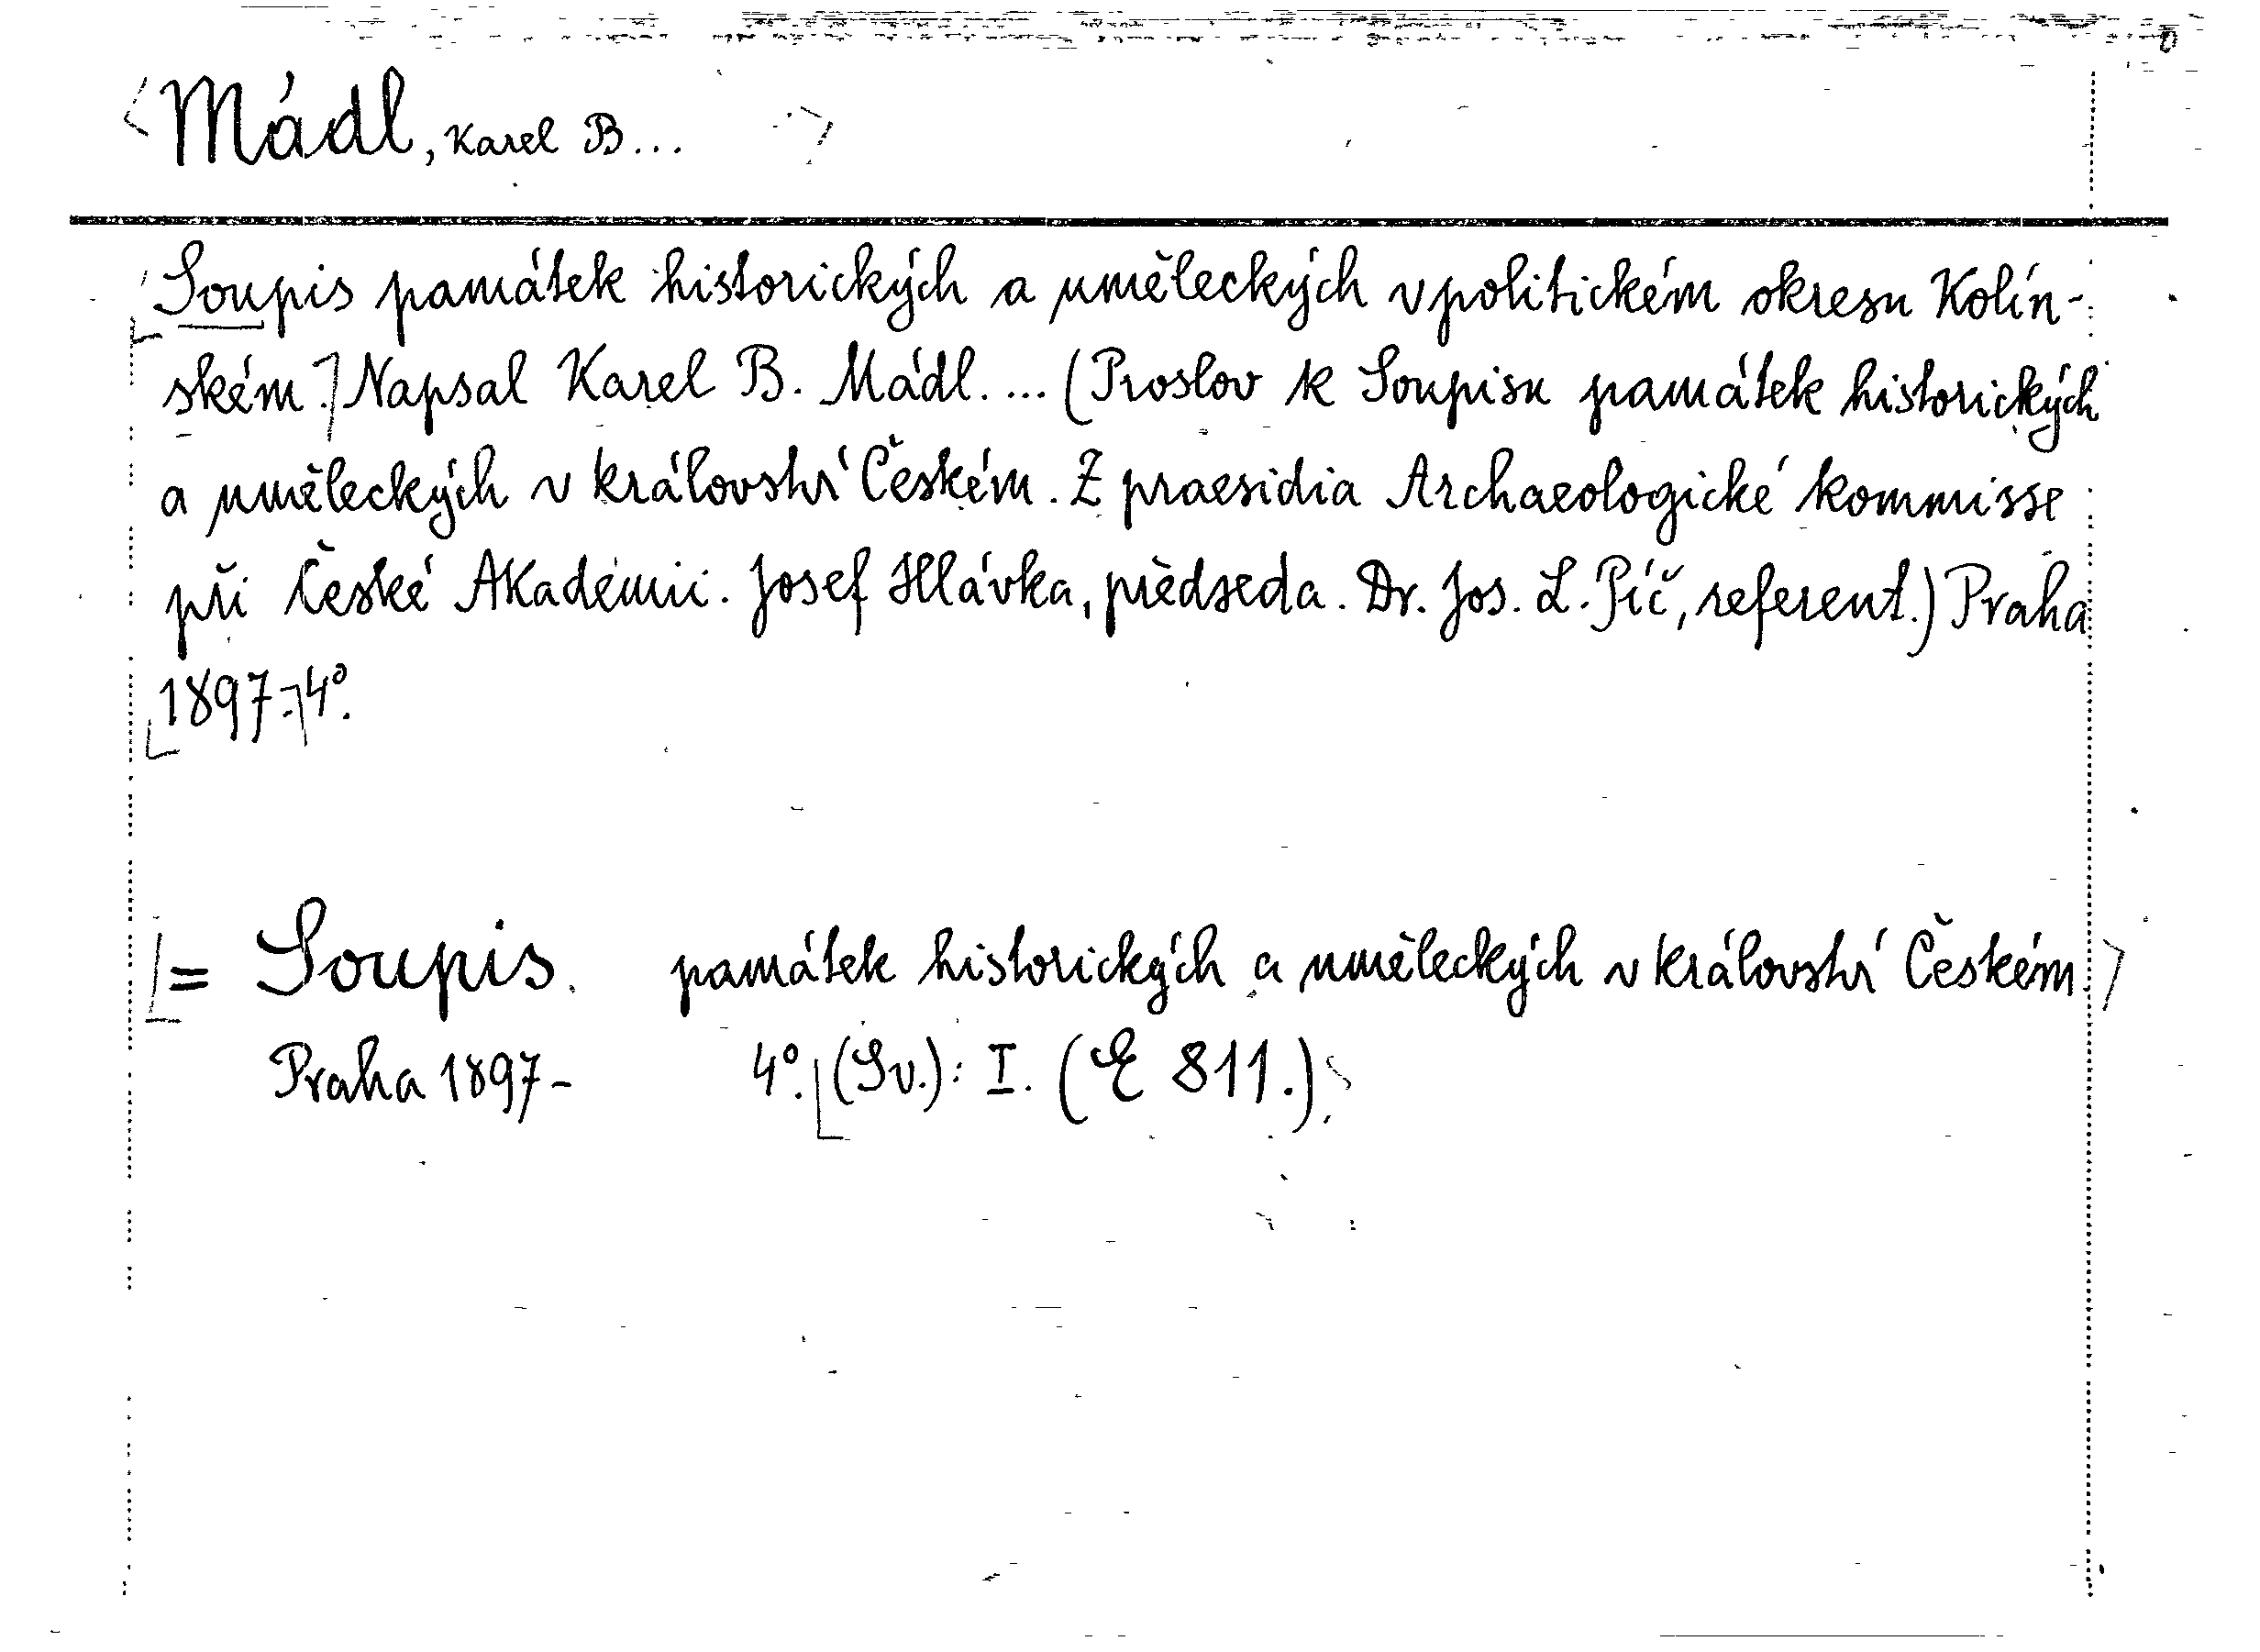 Mádl, Karel B...
Soupis památek historických a uměleckých v politickém okresu Kolín-
ském. Napsal Karel B. Mádl. ... (Proslov k Soupisu památek historických
a uměleckých v království Českém. Z praesidia Archaeologické kommisse
při České Akademii. Josef Hlávka, předseda. Dr. Jos. L. Píč, referent.) Praha
1897. 4°.
= Soupis. památek historických a uměleckých v království Českém.
Praha 1897- 4°. (Sv.): I. (E 811.)